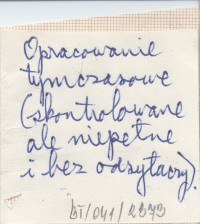 Opracowanie
tymczasowe
(skontrolowane
ale niepełne
i bez odsyłaczy).
BI/041/2373